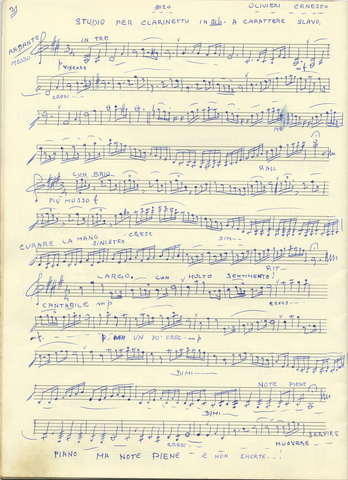 OLIVIERI ERNESTO
STUDIO PER CLARINETTO IN SIb A CARATTERE SLAVO
ANDANTE IN TRE
MOSSO
p VIBRARE mf
CRESC
RALL
CON BRIO
PIÙ MOSSO f
CRESC DIM
CURARE LA MANO SINISTRA
RIT
LARGO CON MOLTO SENTIMENTO!
CANTABILE mp CRESC
mf p UN PO' CRESC mp
DIMI
NOTE PIENE
DIMI
CRESC MUOVERE
PIANO MA NOTE PIENE E NON SMORTE !